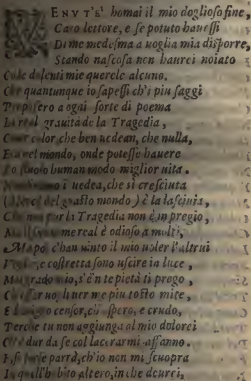 VENVTE' homai il mio doglioso fine,
Caro lettore, e se potuto hauessi
Di me medesma a uoglia mia disporre,
Stando nascosa non haurei noiato
Co le dolenti mie querele alcuno.
Che quantunque io sapessi ch'i piu saggi
a ogni sorte di poema
La real grauità de la Tragedia,
color, che ben uedean, che nulla,
nel mondo, onde potesse hauere
human modo miglior uita.
uedea, che si cresciuta
del guasto mondo) è la lasciuia,
Che non pur la Tragedia non è in pregio,
Ma il nome real è odioso a molti,
Ma poi c'han uinto il mio uoler l'altrui
e costretta sono uscire in luce,
Malgrado mio, s'è'n te pietà ti prego,
uogli, hauer me piu tosto mite,
E benigno censor, ch'aspero, e crudo,
Perche tu non aggiunga al mio dolore
dur da se col lacerarmi affanno.
forse parrà, ch'io non mi scuopra
In quell'habito altero, in che deurei,